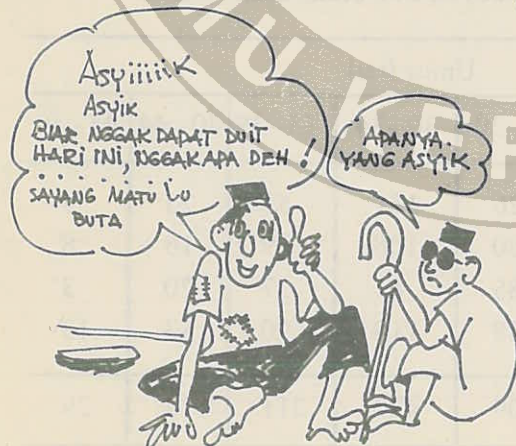 Asyiiiiik
ASYIK
BIAR NGGAK DAPAT DUIT
HARI INI, NGGAK APA DEH !
SAYANG MATU LU
BUTA
APANYA.
YANG ASYIK